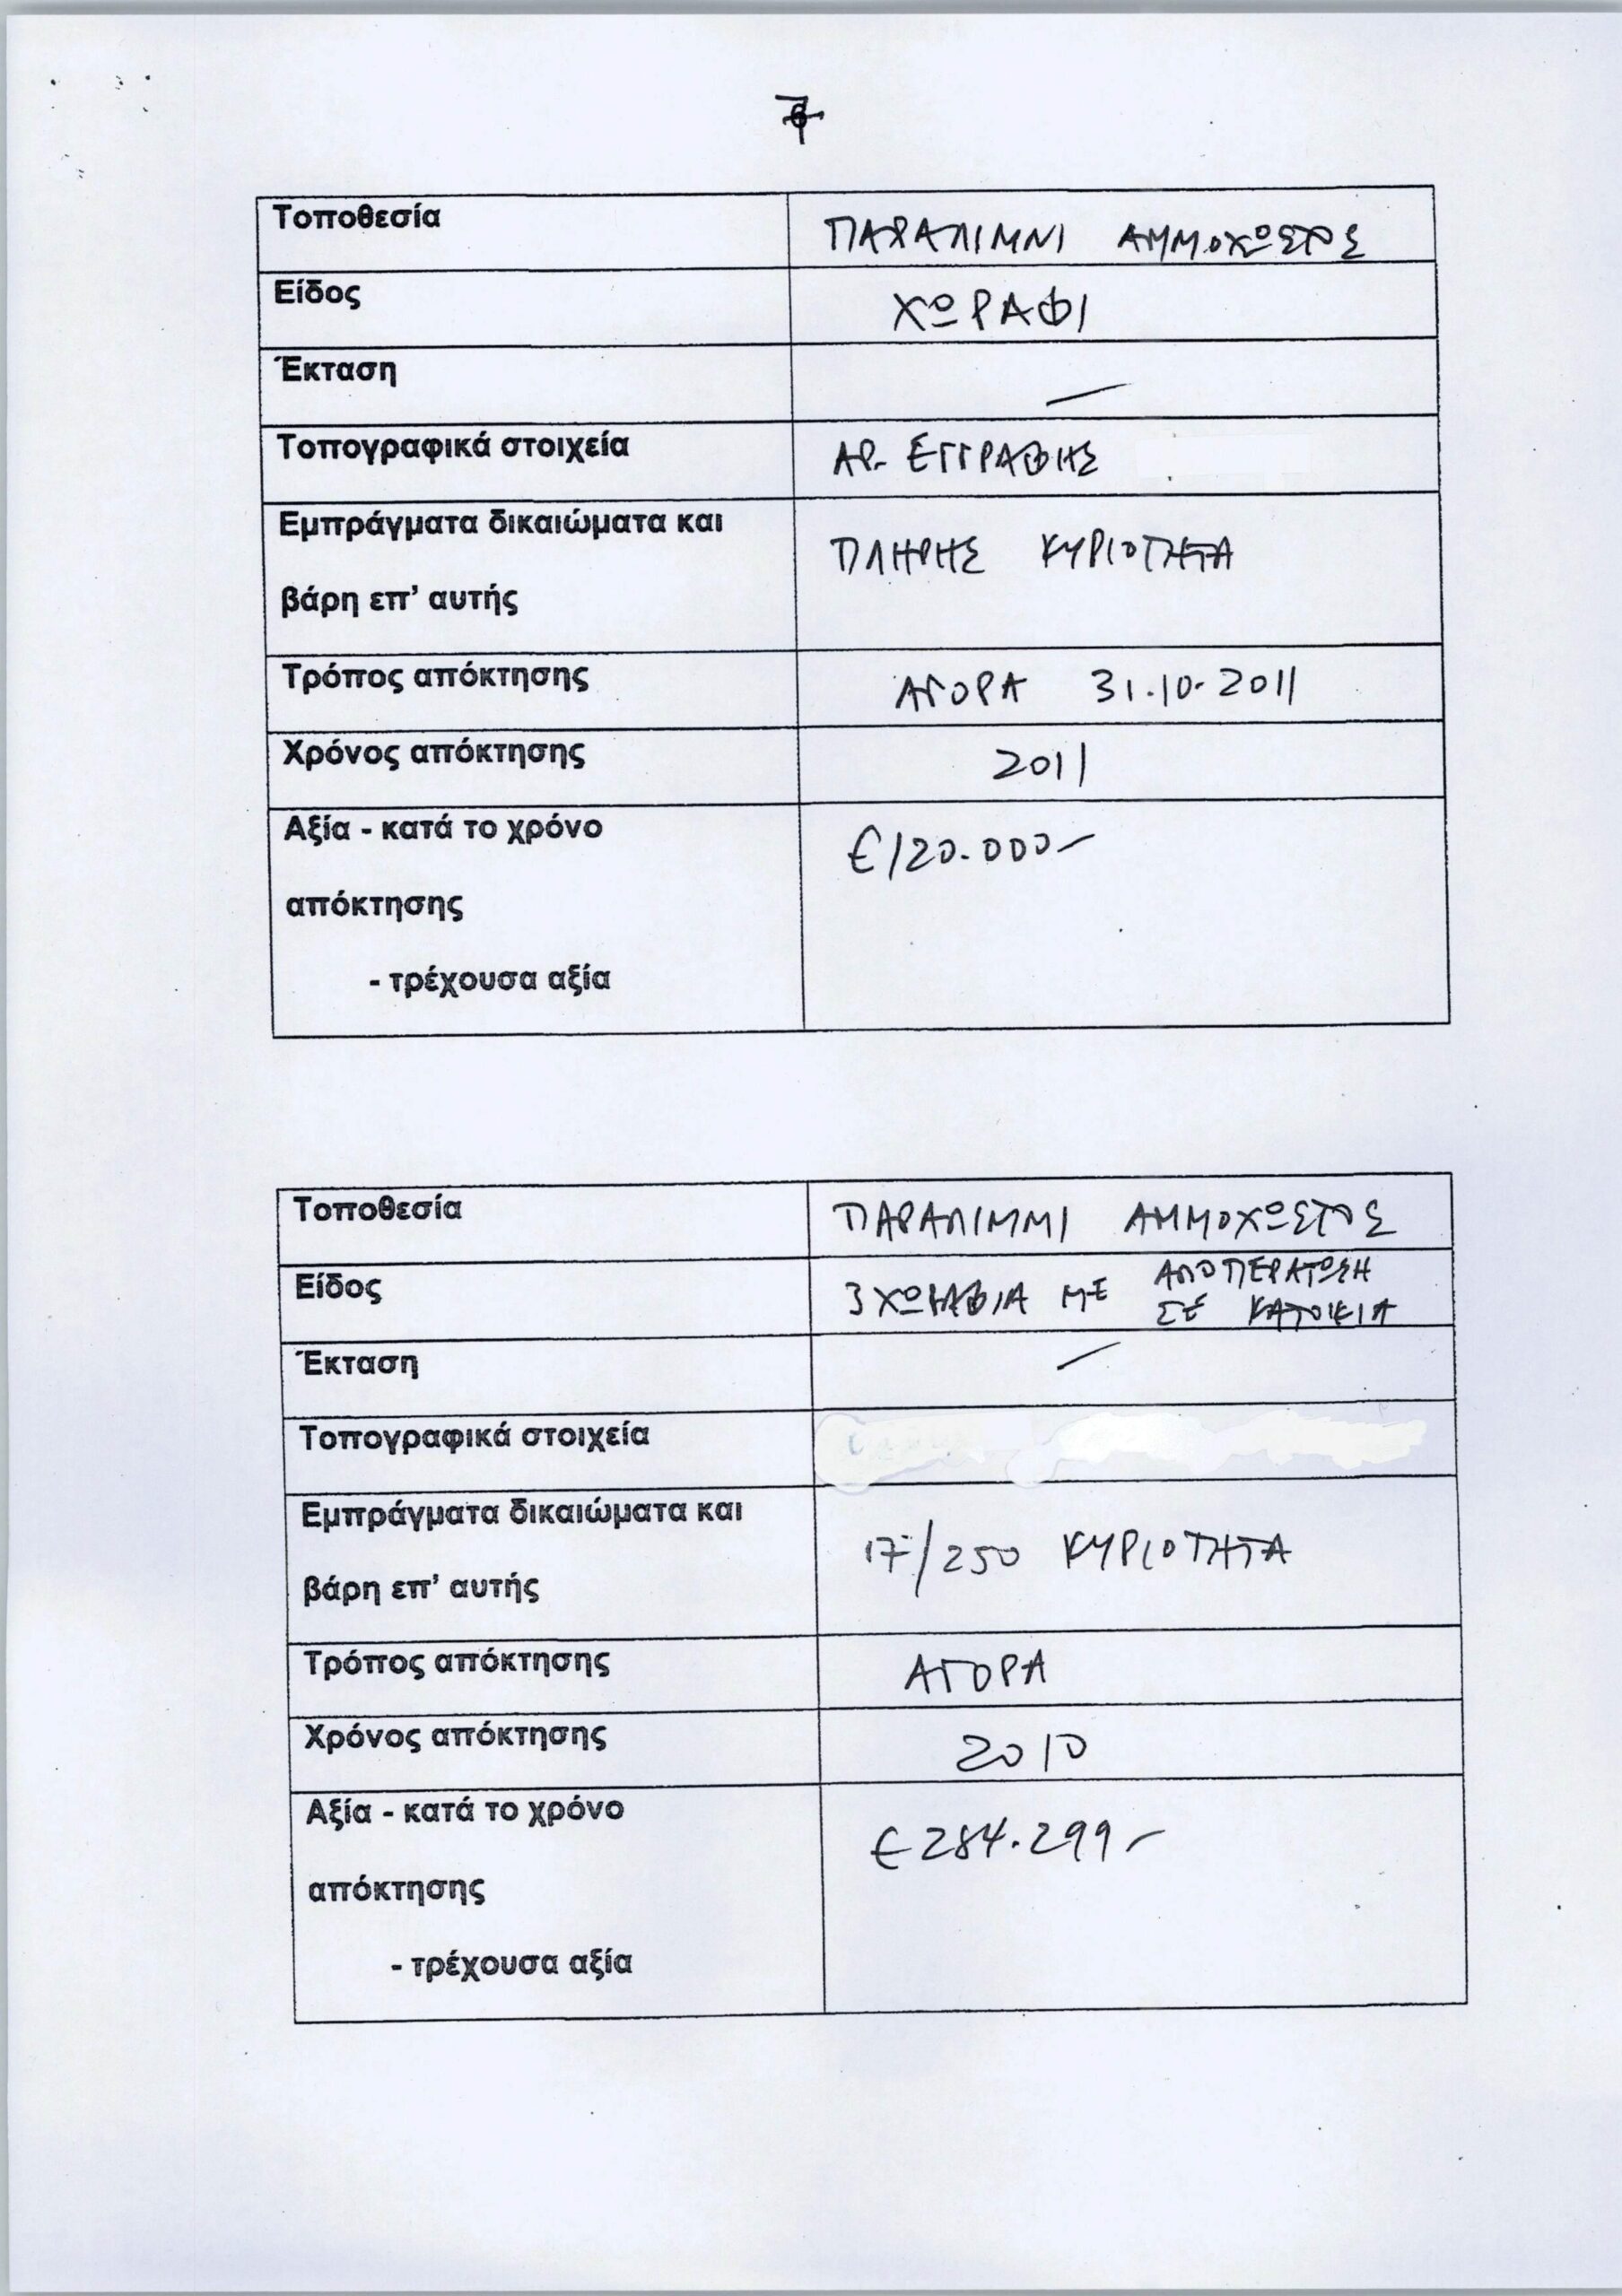 7
Τοποθεσία ΠΑΡΑΛΙΜΝΙ ΑΜΜΟΧΩΣΤΟΣ
Είδος ΧΩΡΑΦΙ
Έκταση —
Τοπογραφικά στοιχεία ΑΡ. ΕΓΓΡΑΦΗΣ
Εμπράγματα δικαιώματα και ΠΛΗΡΗΣ ΚΥΡΙΟΤΗΤΑ
βάρη επ' αυτής
Τρόπος απόκτησης ΑΓΟΡΑ 31.10.2011
Χρόνος απόκτησης 2011
Αξία - κατά το χρόνο €120.000-
απόκτησης
- τρέχουσα αξία
Τοποθεσία ΠΑΡΑΛΙΜΜΙ ΑΜΜΟΧΩΣΤΟΣ
Είδος 3 ΧΩΡΑΦΙΑ ΜΕ ΑΠΟΠΕΡΑΤΩΣΗ
ΣΕ ΚΑΤΟΙΚΙΑ
Έκταση —
Τοπογραφικά στοιχεία
Εμπράγματα δικαιώματα και 17/250 ΚΥΡΙΟΤΗΤΑ
βάρη επ' αυτής
Τρόπος απόκτησης ΑΓΟΡΑ
Χρόνος απόκτησης 2010
Αξία - κατά το χρόνο €284.299-
απόκτησης
- τρέχουσα αξία